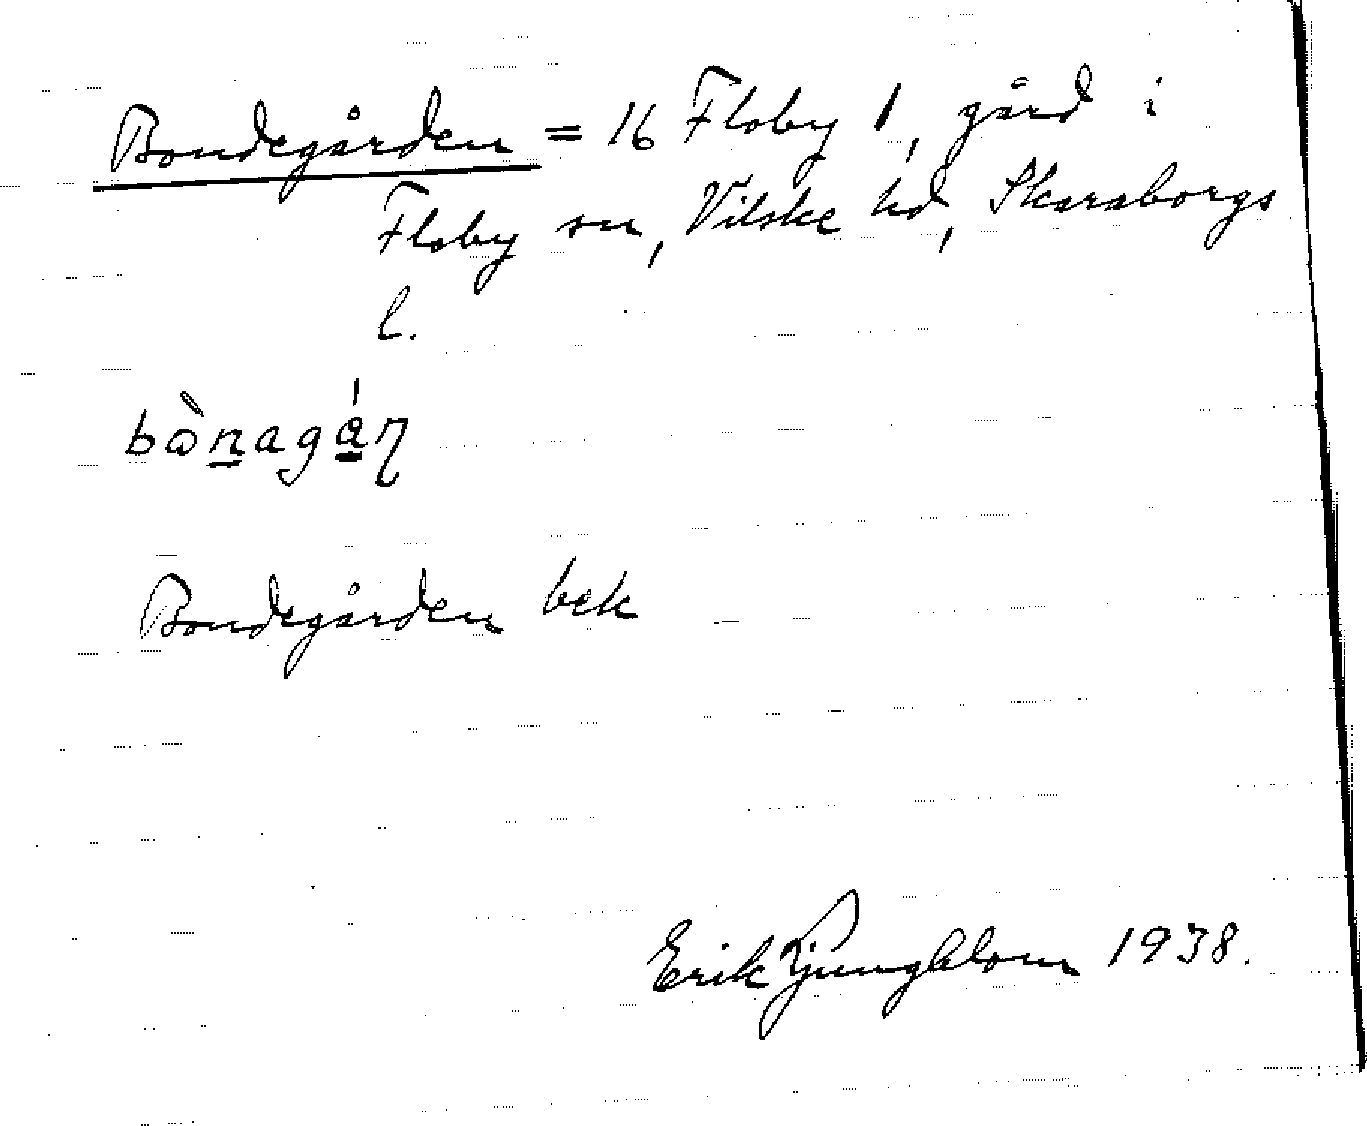 Bondegården = 16 Floby 1, gård i
Floby sn, Vilske hd, Skaraborgs
l.
bònagán
Bondegården bek
Erik Ljungblom 1938.